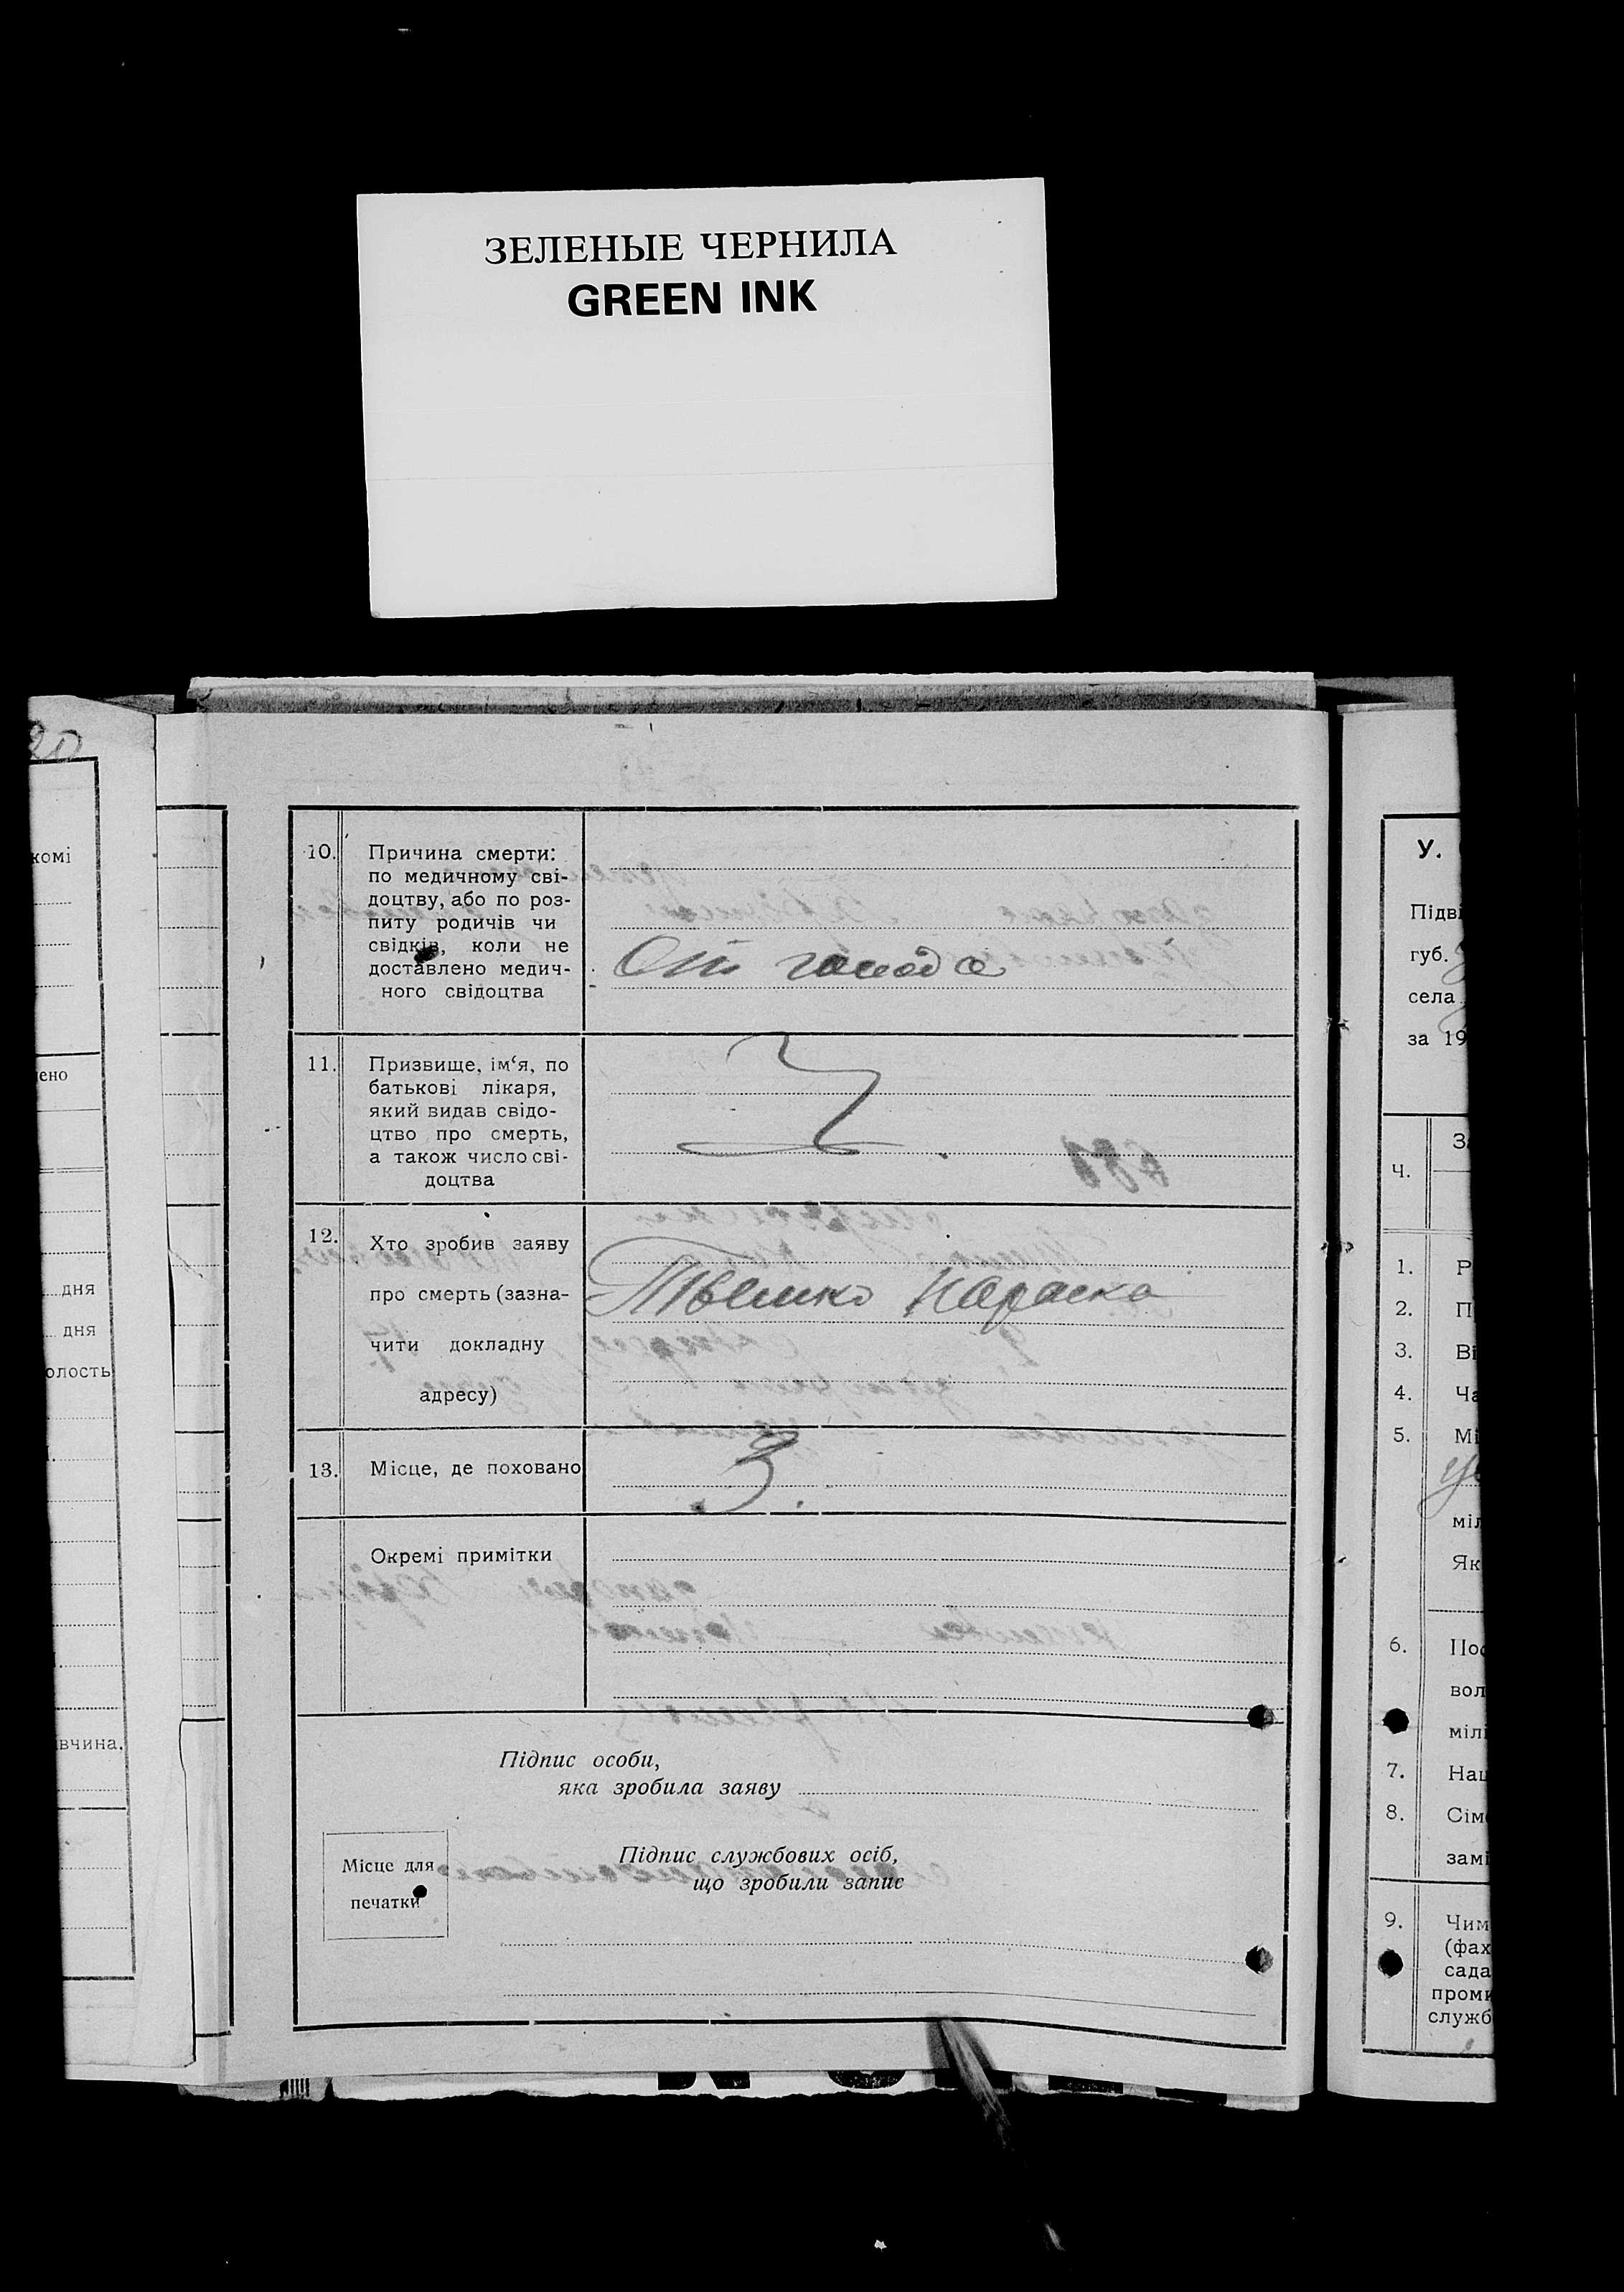 ЗЕЛЕНЫЕ ЧЕРНИЛА
GREEN INK
10. Причина смерти:
по медичному сві-
доцтву, або по роз-
питу родичів чи
свідків, коли не
доставлено медич-
ного свідоцтва
От голода
11. Призвище, ім‘я, по
батькові лікаря,
який видав свідо-
цтво про смерть,
а також число сві-
доцтва
12. Хто зробив заяву
про смерть (зазна-
чити докладну
адресу)
Параска
13. Місце, де поховано
Окремі примітки
Підпис особи,
яка зробила заяву
Місце для
печатки
Підпис службових осіб,
що зробили запис
комі
ено
дня
дня
олость
вчина.
У.
Підві
губ.
села
за 19
Ч.
За
1. Р
2. П
3. Ві
4. Ча
5. Мі
міл
Як
6. Пос
вол
мілі
7. Нац
8. Сім
замі
9. Чим
(фах
сада
проми
служб